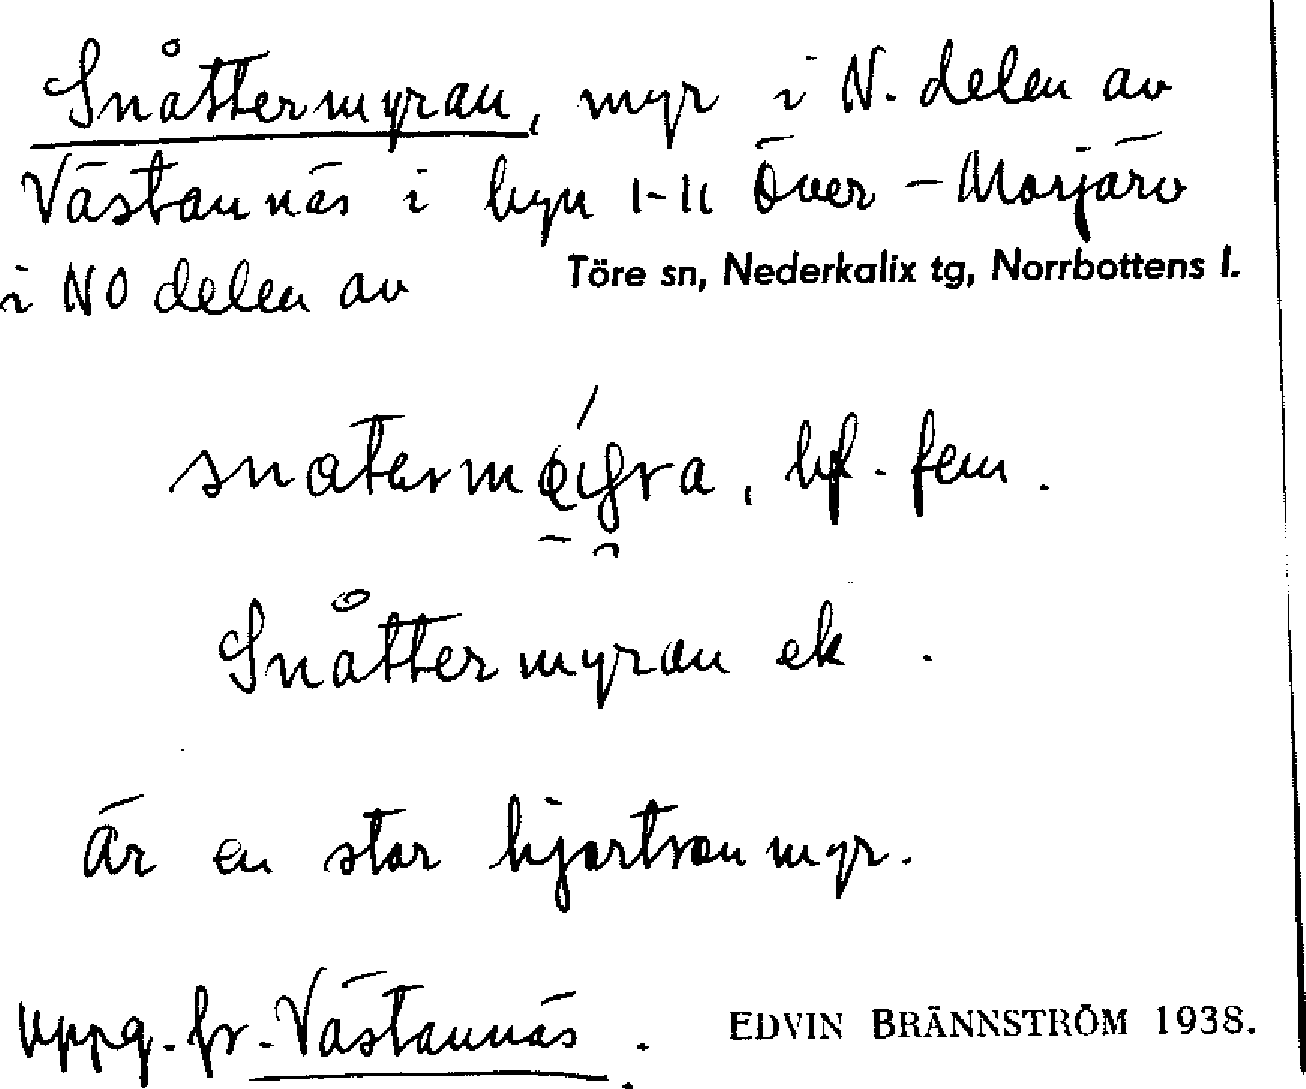 Snåttermyran, myr i N. delen av
Västannäs i byn 1-11 Över-Morjärv
i NO delen av Töre sn, Nederkalix tg, Norrbottens l.
bf. fem.
Snåttermyran ek.
Är en stor hjortronmyr.
Uppg. fr. Västannäs.
EDVIN BRÄNNSTRÖM 1938.